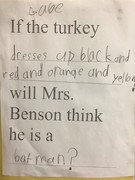 Gabe
If the turkey
dresses up black and
red and orange and yellow
will Mrs.
Benson think
he is a
batman?